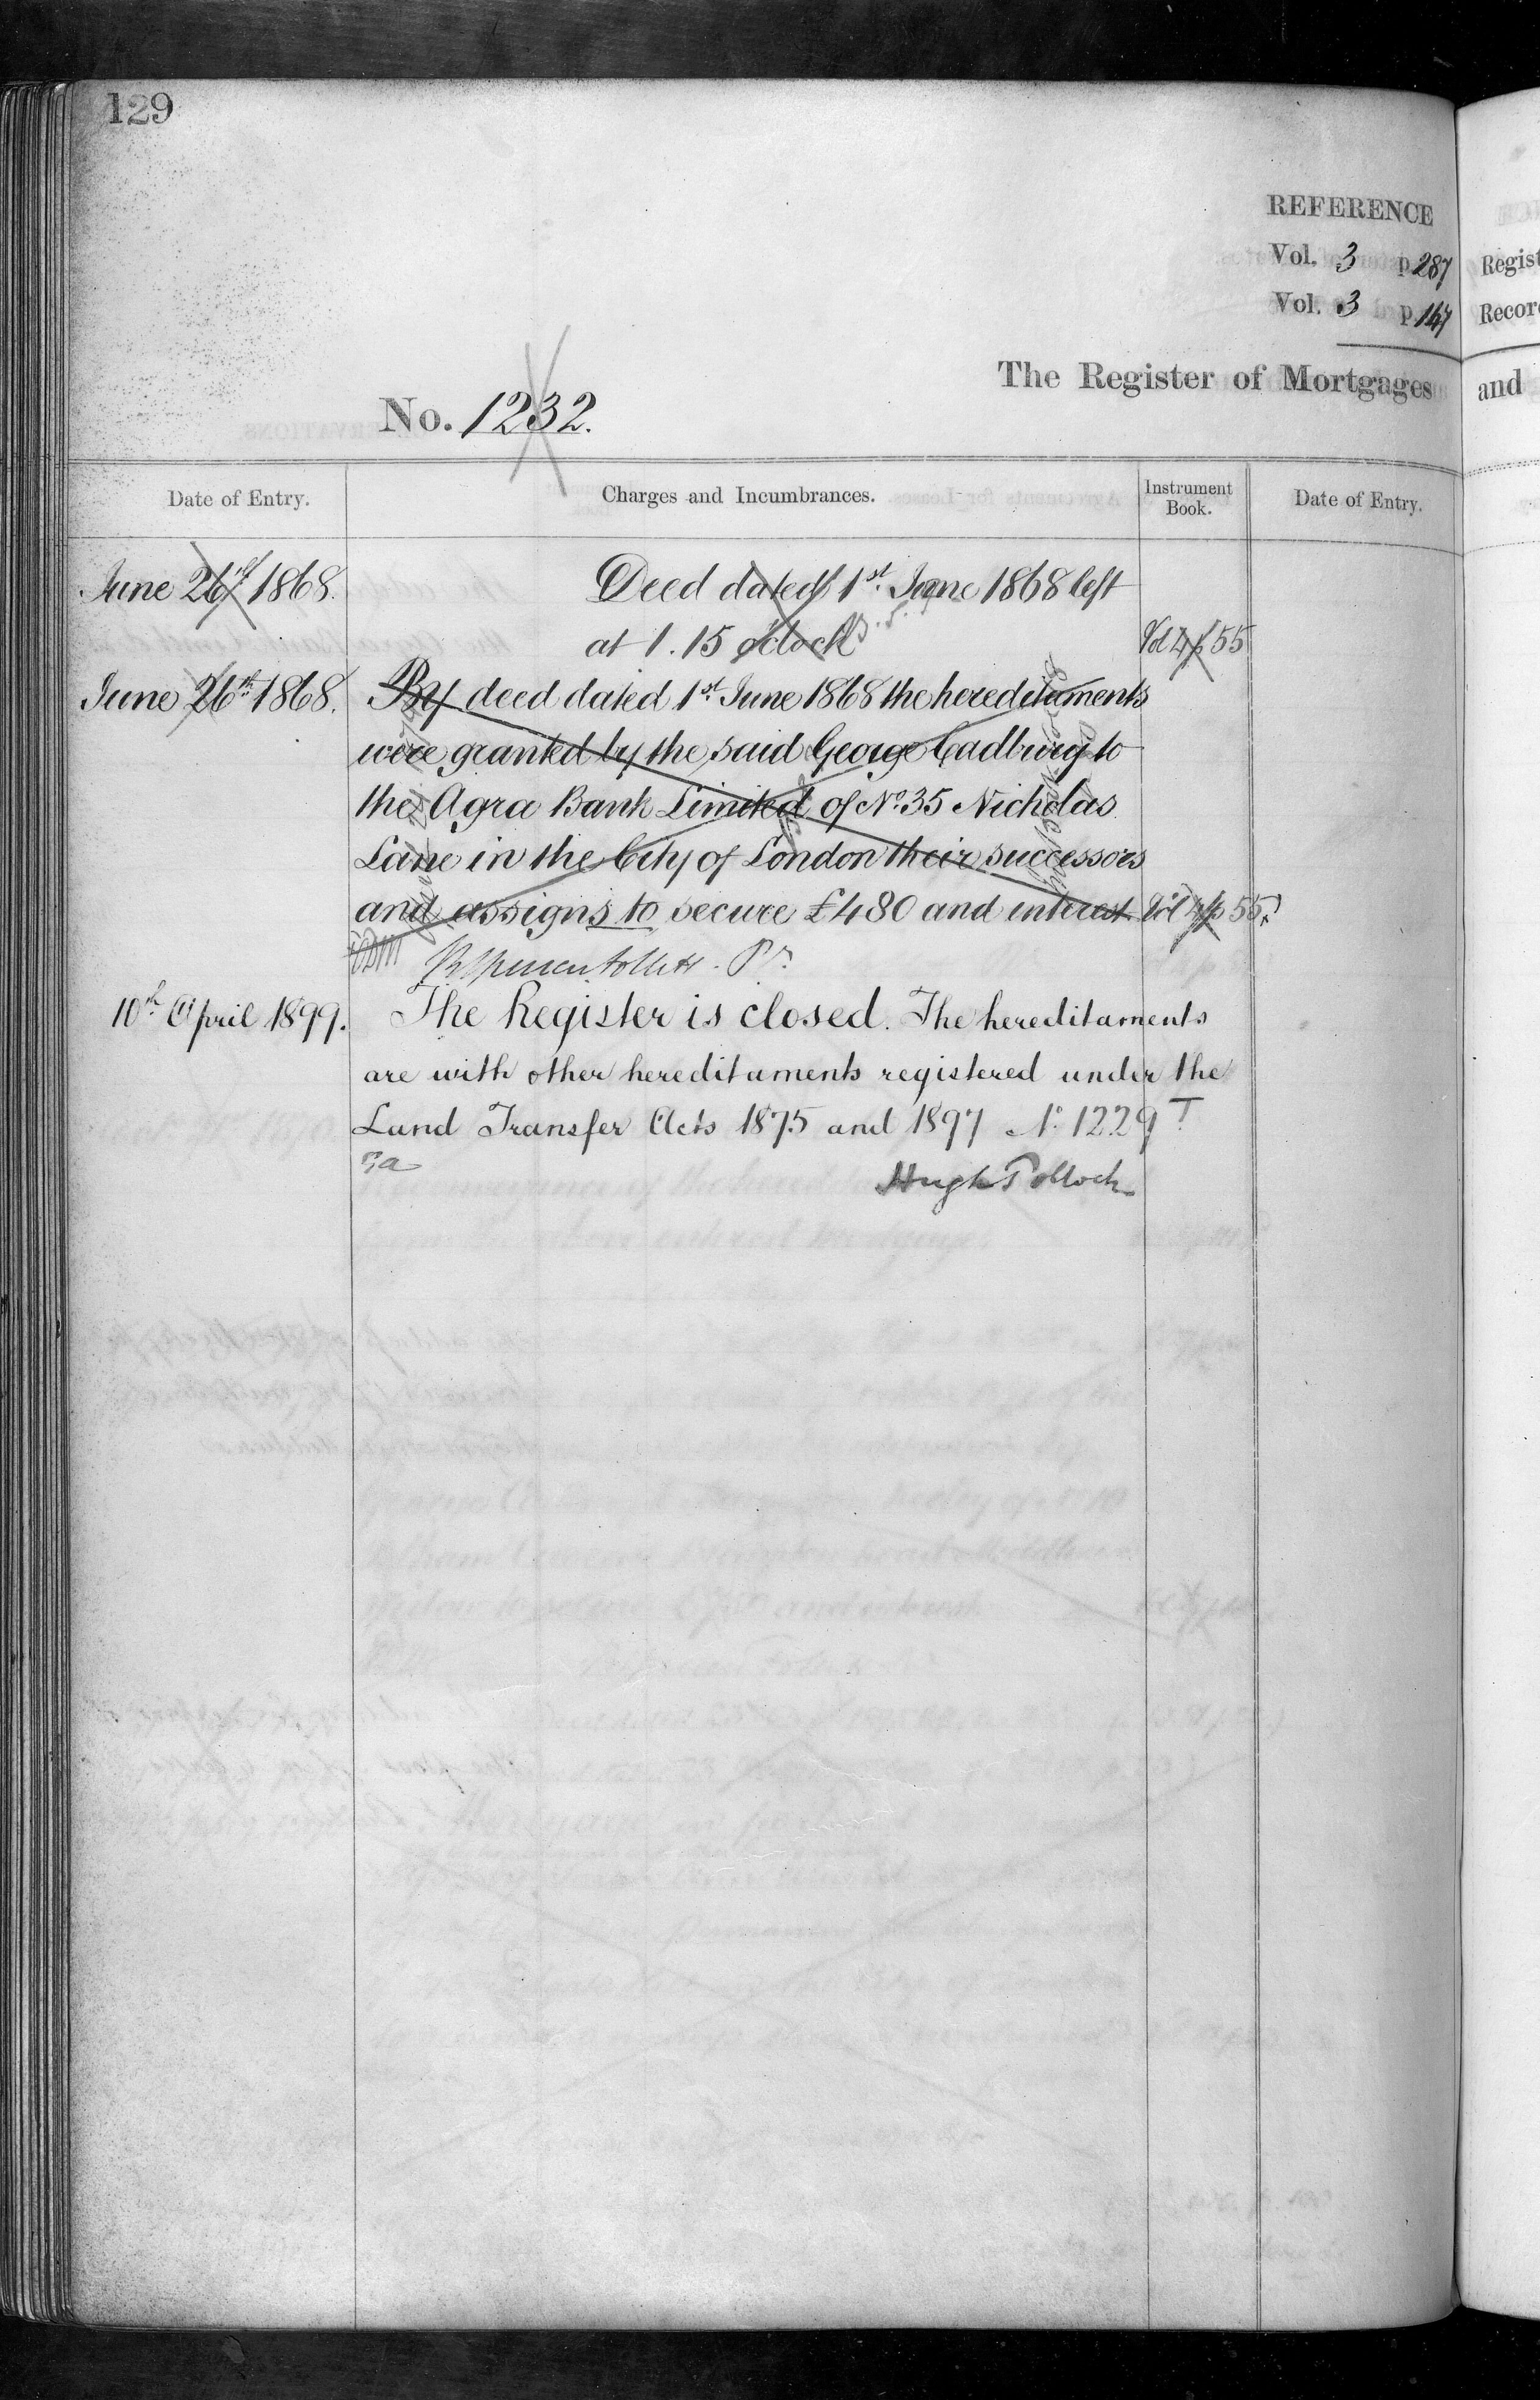 129
REFERENCE
Vol. 3 p. 287
Vol. 3 p. 147
The Register of Mortgages
No. 1232.
Date of Entry.
Charges and Incumbrances.
Instrument Book.
Date of Entry.
June 26th 1868.
Deed dated 1st. June 1868 left
at 1.15 o'clock
Vol 4 p 55
June 26th 1868.
By deed dated 1st. June 1868 the hereditaments
were granted by the said George Cadbury to
the Agra Bank Limited of No. 35 Nicholas
Lane in the City of London their successors
and assigns to secure £480 and interest
Vol 4 p 55
10th April 1899.
The Register is closed. The hereditaments
are with other hereditaments registered under the
Land Transfer Acts 1875 and 1897 No. 1229 T
Hugh Pollock
Regist
Recor
and